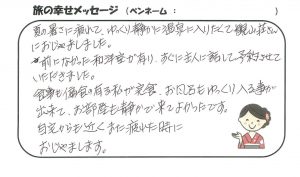 旅の幸せメッセージ (ペンネーム : )
夏の暑さに疲れて、ゆっくり静かに温泉に入りたくて 観山荘さん
におじゃましました。
前になかった和洋室が有り、すぐに主人に話して予約させて
いただきました。
食事も偏食の有る私が完食、お風呂もゆっくり入る事が
出来て、お部屋も静かで来てよかったです。
自宅からも近く また疲れた時に
おじゃまします。